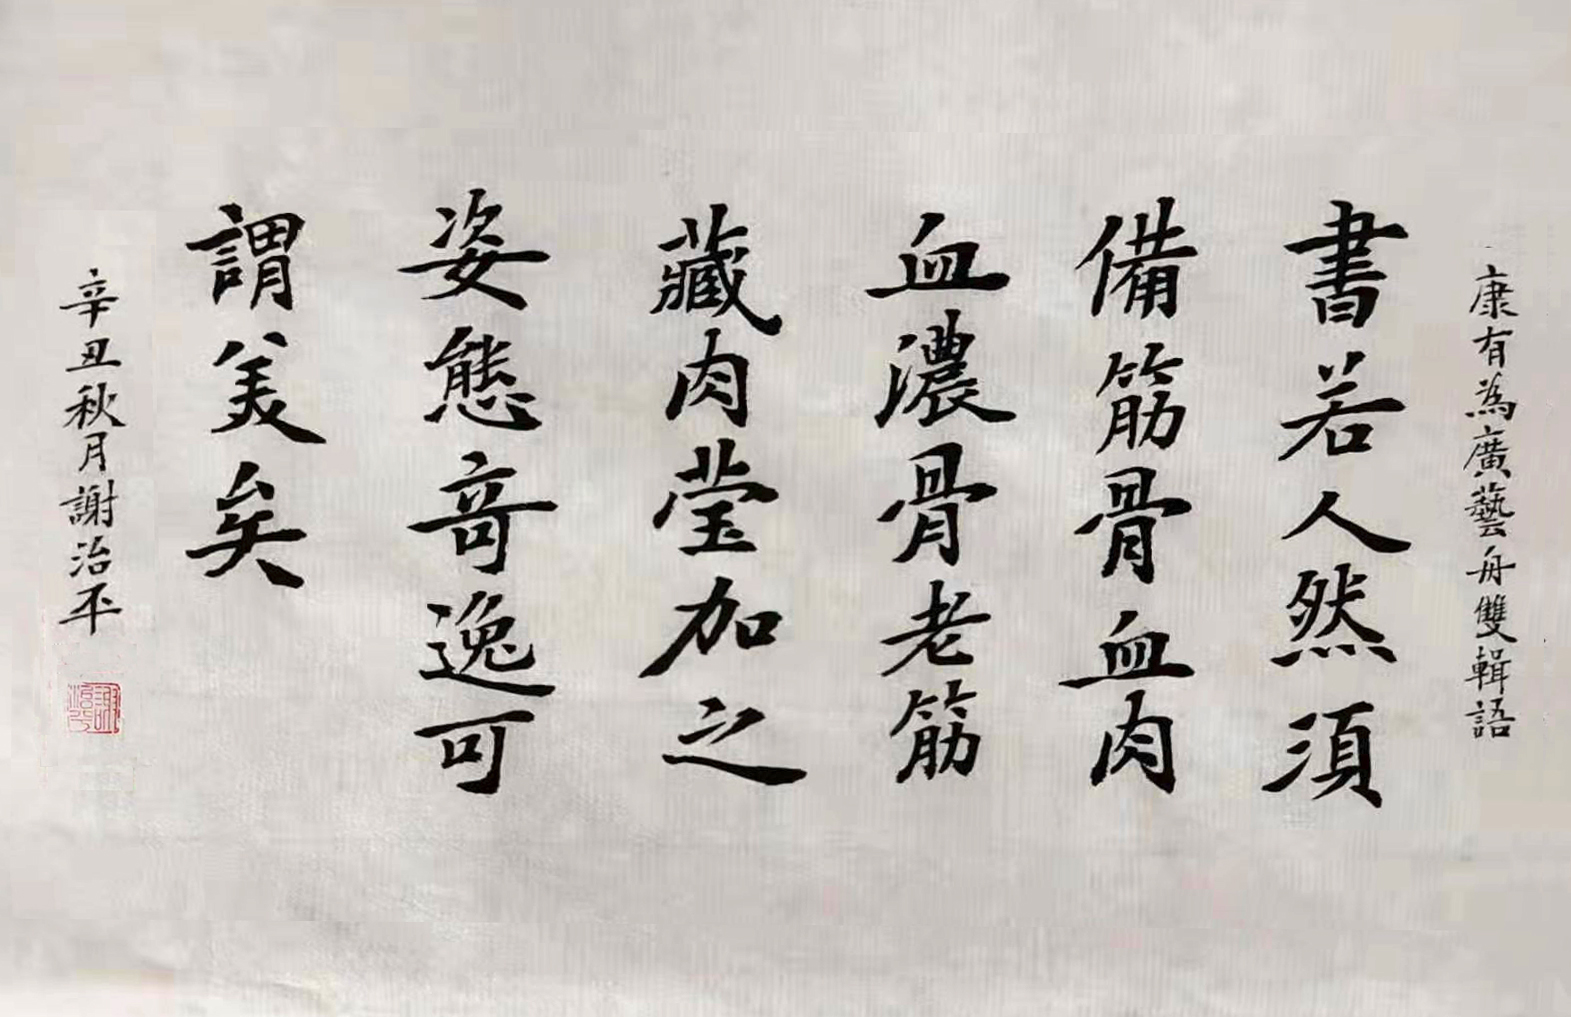 康有為廣藝舟雙輯語
書若人然須
備筋骨血肉
血濃骨老筋
藏肉莹加之
姿態奇逸可
謂美矣
辛丑秋月謝治平